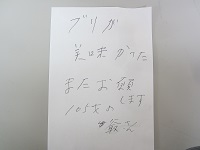 ブリが
美味かった
またお願
します
105才の
敏子